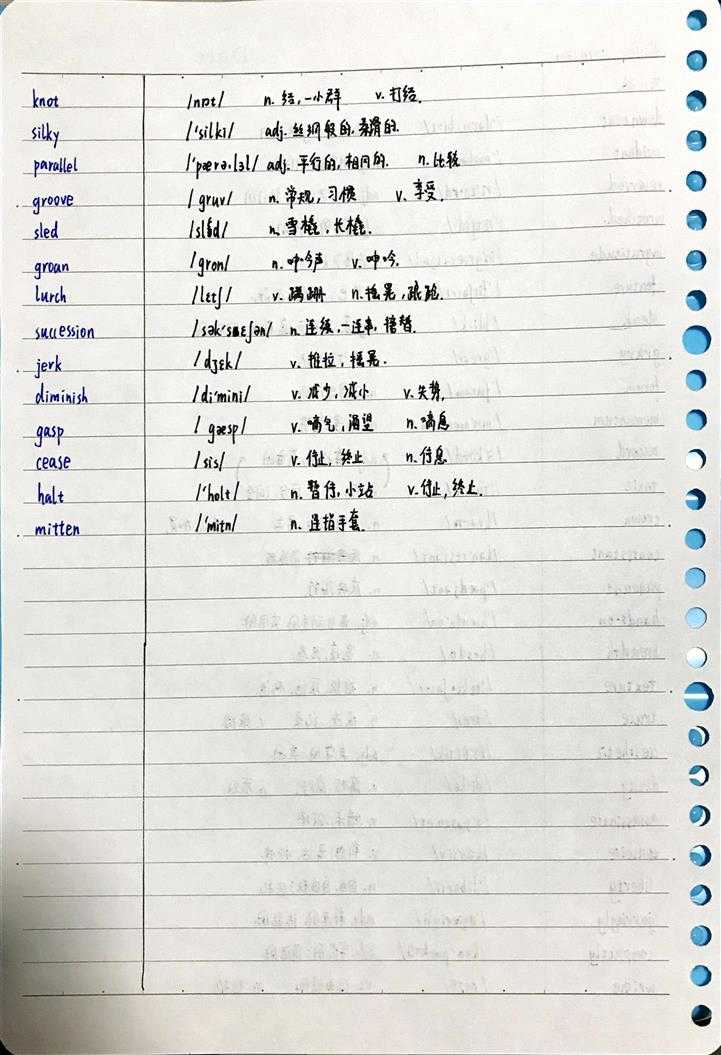 knot /nɒt/ n. 结,一小群 v. 打结.
silky /'silkɪ/ adj. 丝绸般的,柔滑的.
parallel /'pærə.lɜl/ adj. 平行的,相同的. n. 比较
groove /gruv/ n. 常规,习惯 v. 享受.
sled /slɛd/ n. 雪橇,长橇.
groan /gron/ n. 呻吟声 v. 呻吟.
lurch /lɛtʃ/ v. 蹒跚 n. 摇晃,踉跄.
succession /sək'sɛʃən/ n. 连续,一连串,接替.
jerk /dʒɛk/ v. 推拉,摇晃.
diminish /di'mini/ v. 减少,减小 v. 失势.
gasp /gæsp/ v. 喘气,渴望 n. 喘息
cease /sis/ v. 停止,终止 n. 停息
halt /'holt/ n. 暂停,小站 v. 停止,终止.
mitten /'mitn/ n. 连指手套.